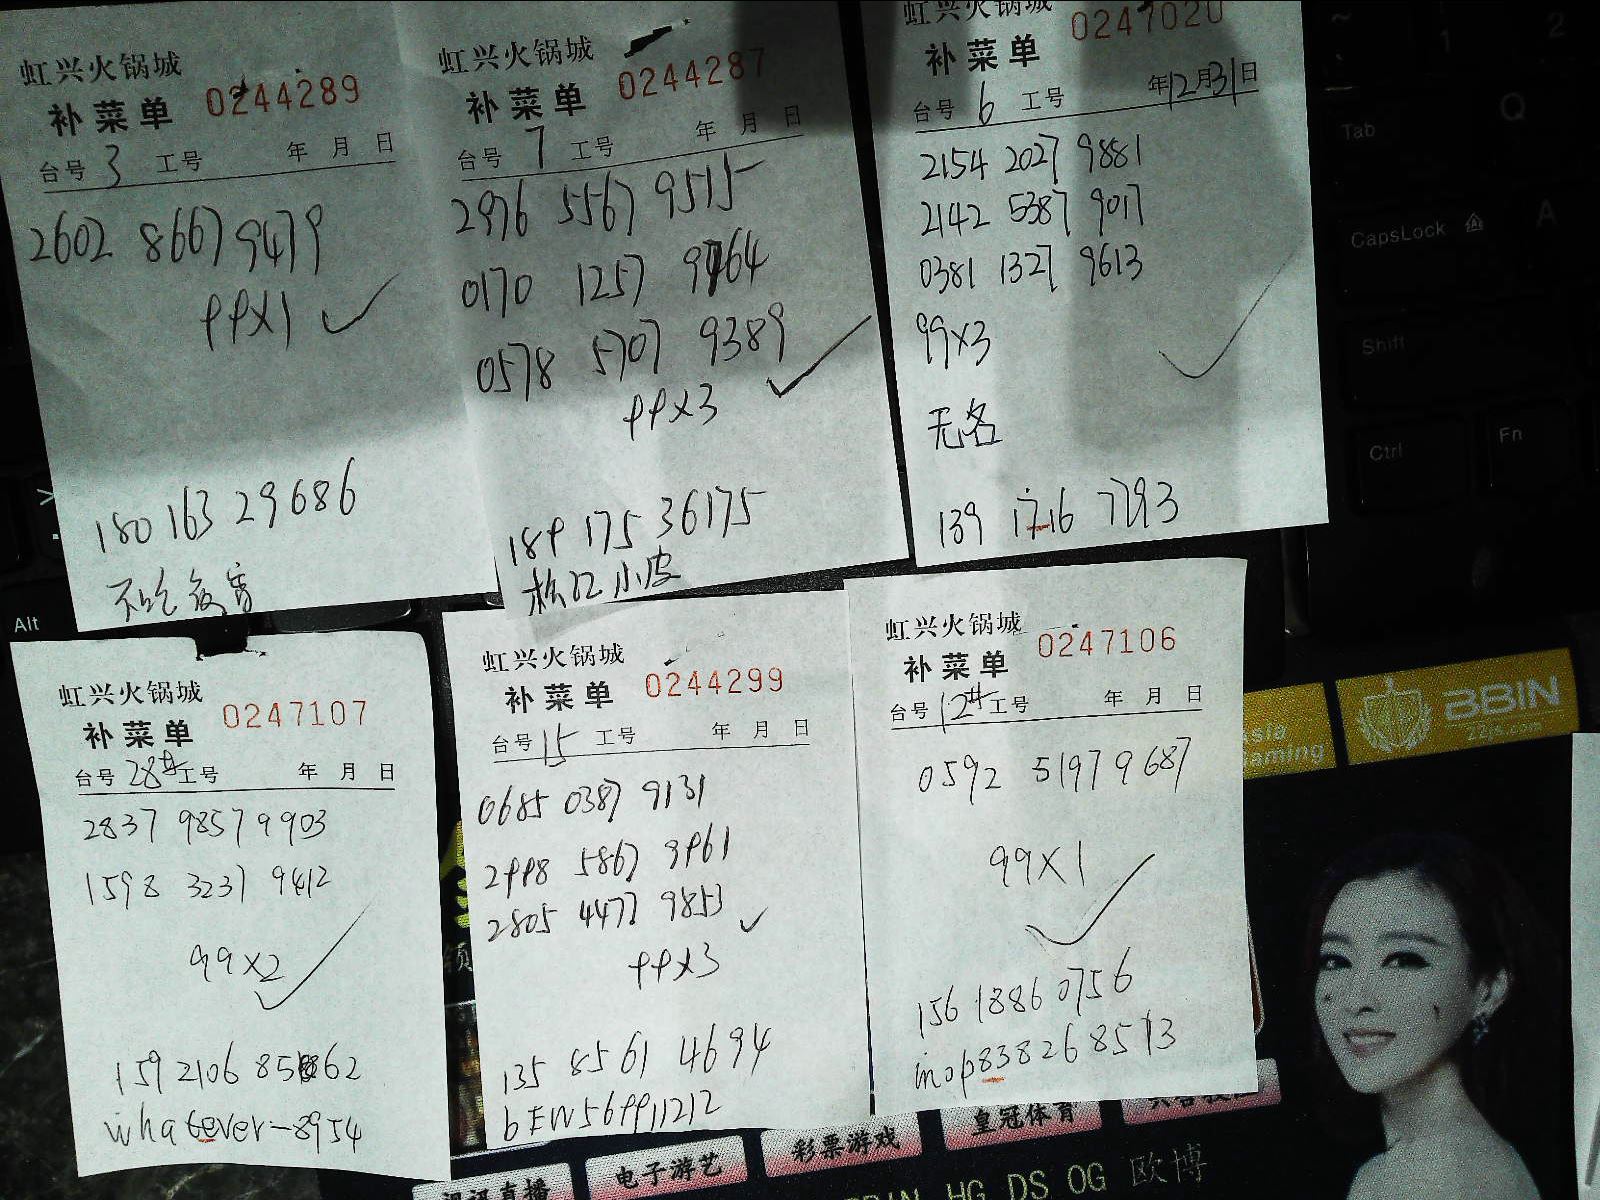 虹兴火锅城
补菜单 0244289
台号 3 工号 年 月 日
2602 8667 9479
99X1
180 163 29686
不吃夜宵
虹兴火锅城
补菜单 0244287
台号 7 工号 年 月 日
2976 5567 9515
0170 1257 9764
0578 5707 9389
99X3
189 175 36175
松江小皮
虹兴火锅城
补菜单 0247020
台号 6 工号 年12月31日
2154 2027 9881
2142 5387 9017
0381 1327 9613
99X3
无名
139 1716 7793
虹兴火锅城
补菜单 0247107
台号 28# 工号 年 月 日
2837 9857 9903
1598 3237 9412
99X2
159 2106 85862
whatever-8954
虹兴火锅城
补菜单 0244299
台号 15 工号 年 月 日
0685 0387 9131
2998 5867 9961
2805 4477 9853
99X3
135 8561 4694
bEW569911212
虹兴火锅城
补菜单 0247106
台号 12# 工号 年 月 日
0592 5197 9687
99X1
156 1886 0756
inop8382685713
~ 1 2
Tab Q
CapsLock A
Shift
Ctrl Fn
Alt
Asia
Gaming
BBIN
22js.com
视讯直播 电子游艺 彩票游戏 皇冠体育
BBIN HG DS OG 欧博